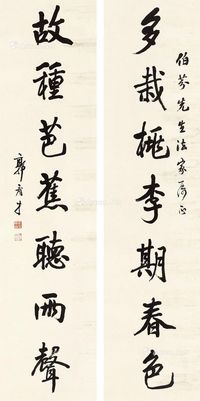 伯芬先生法家屬正
多栽桃李期春色
故種芭蕉聽雨聲
郭